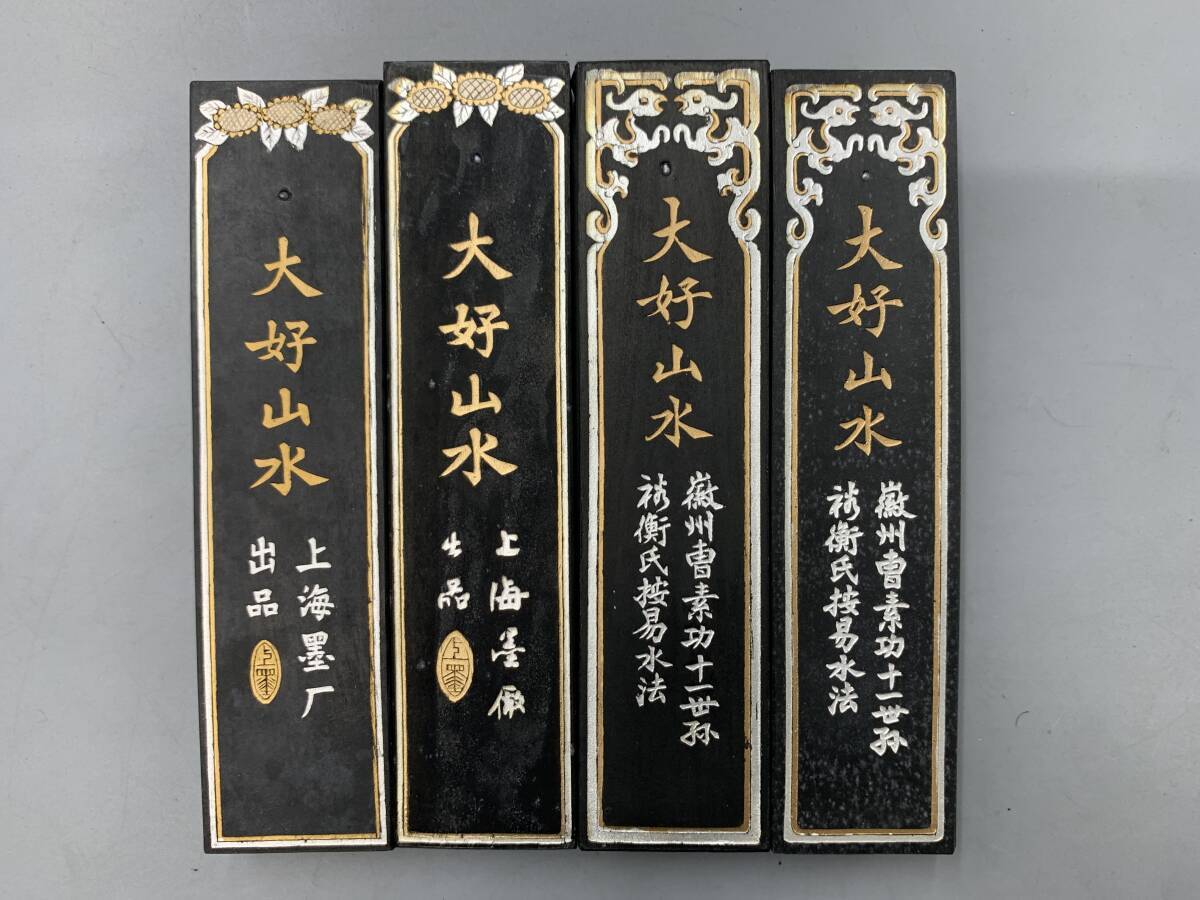 大好山水
上海墨厂
出品
上墨
大好山水
上海墨厰
出品
上墨
大好山水
徽州曹素功十一世孙
裕衡氏按易水法
大好山水
徽州曹素功十一世孙
裕衡氏按易水法